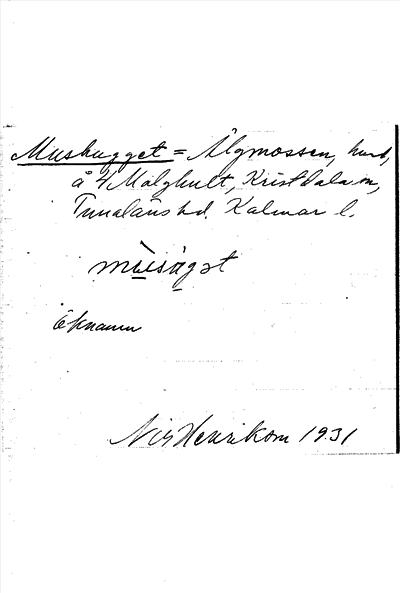 Mushugget = Älgmossen, hmd,
å 4 Målghult, Kristdala sn,
Tunaläns hd. Kalmar l.
Öknamn
Nils Henrikson 1931